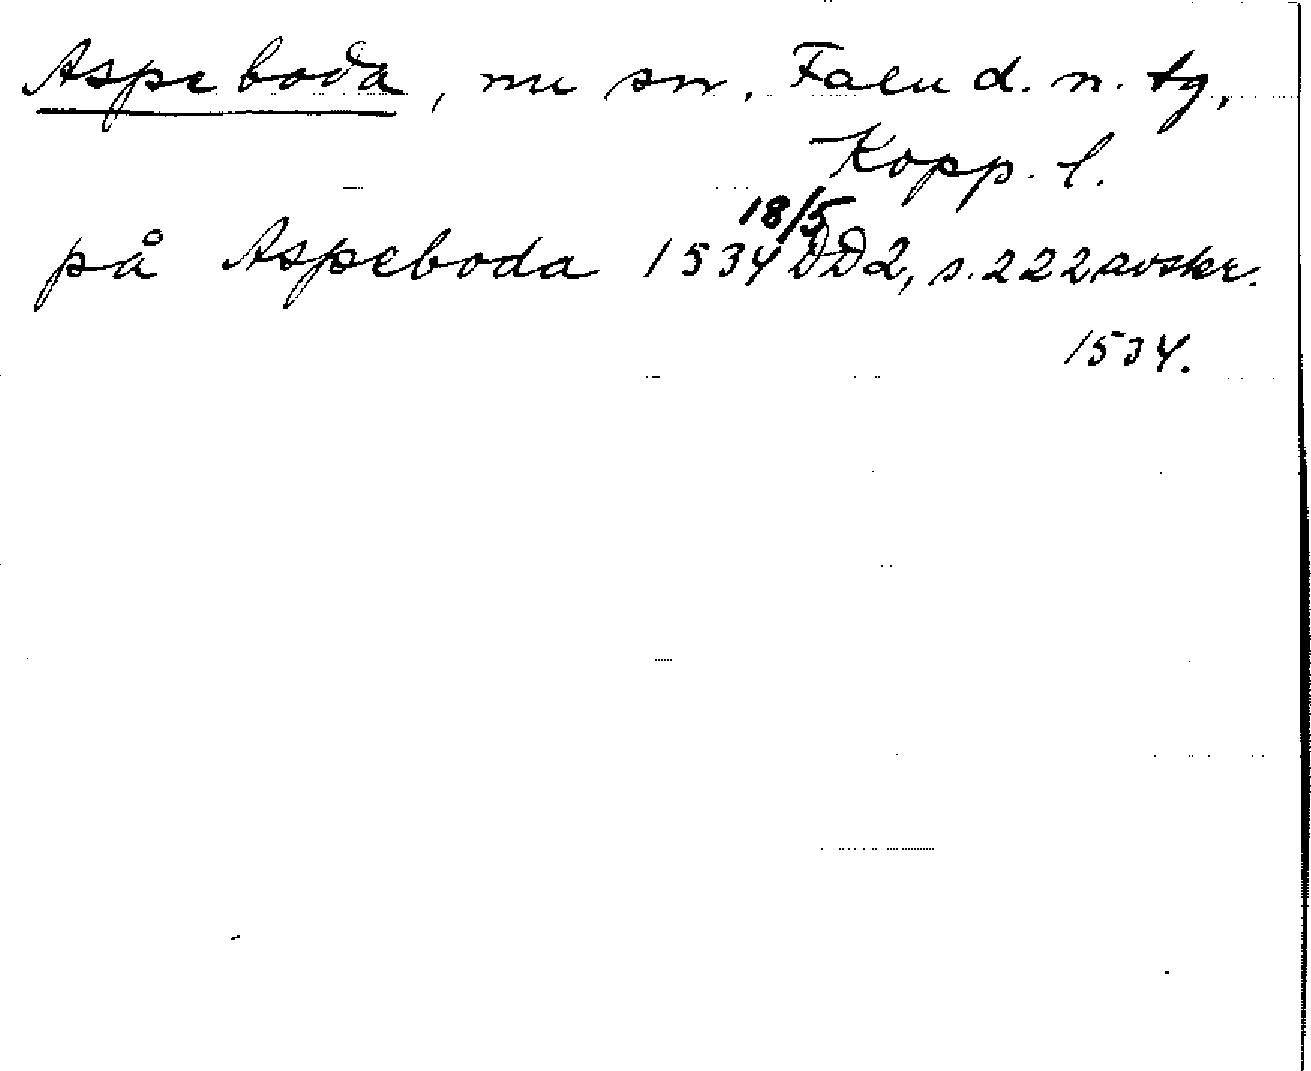 Aspeboda, nu sn, Falu d. n. tg,
Kopp. l.
på Aspeboda 1534 18/5 DD2, s. 222 avskr.
1534.